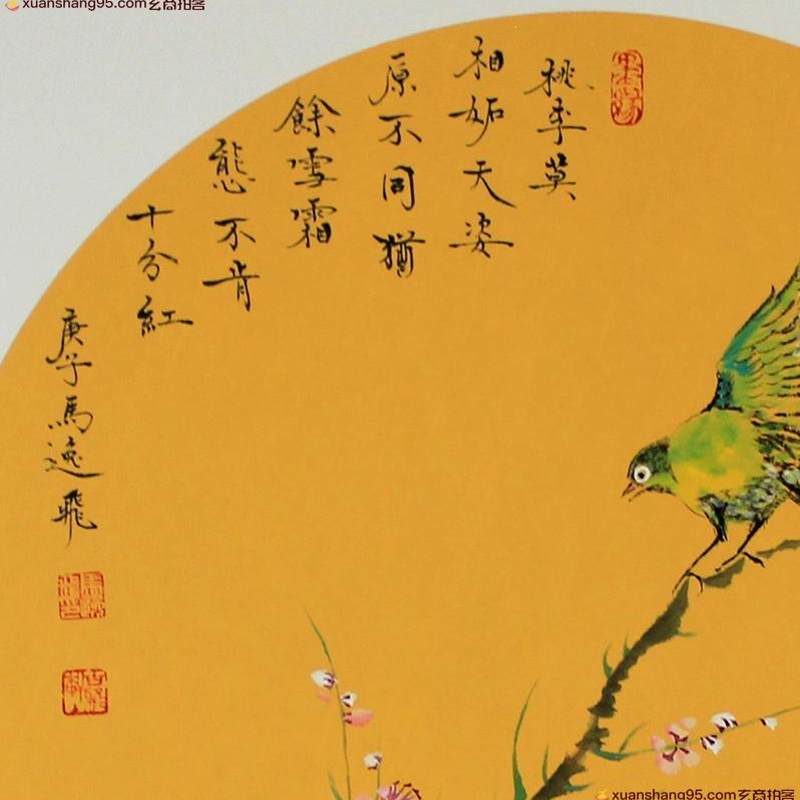 xuanshang95.com玄商拍客
xuanshang95.com玄商拍客
桃李莫
相妬天姿
原不同猶
餘雪霜
態不肯
十分紅
庚子馬逸飛
xuanshang95.com玄商拍客